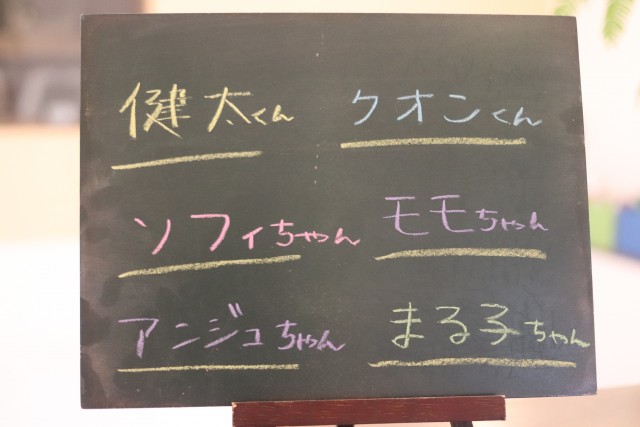 健太くん
クオンくん
ソフィちゃん
モモちゃん
アンジュちゃん
まる子ちゃん